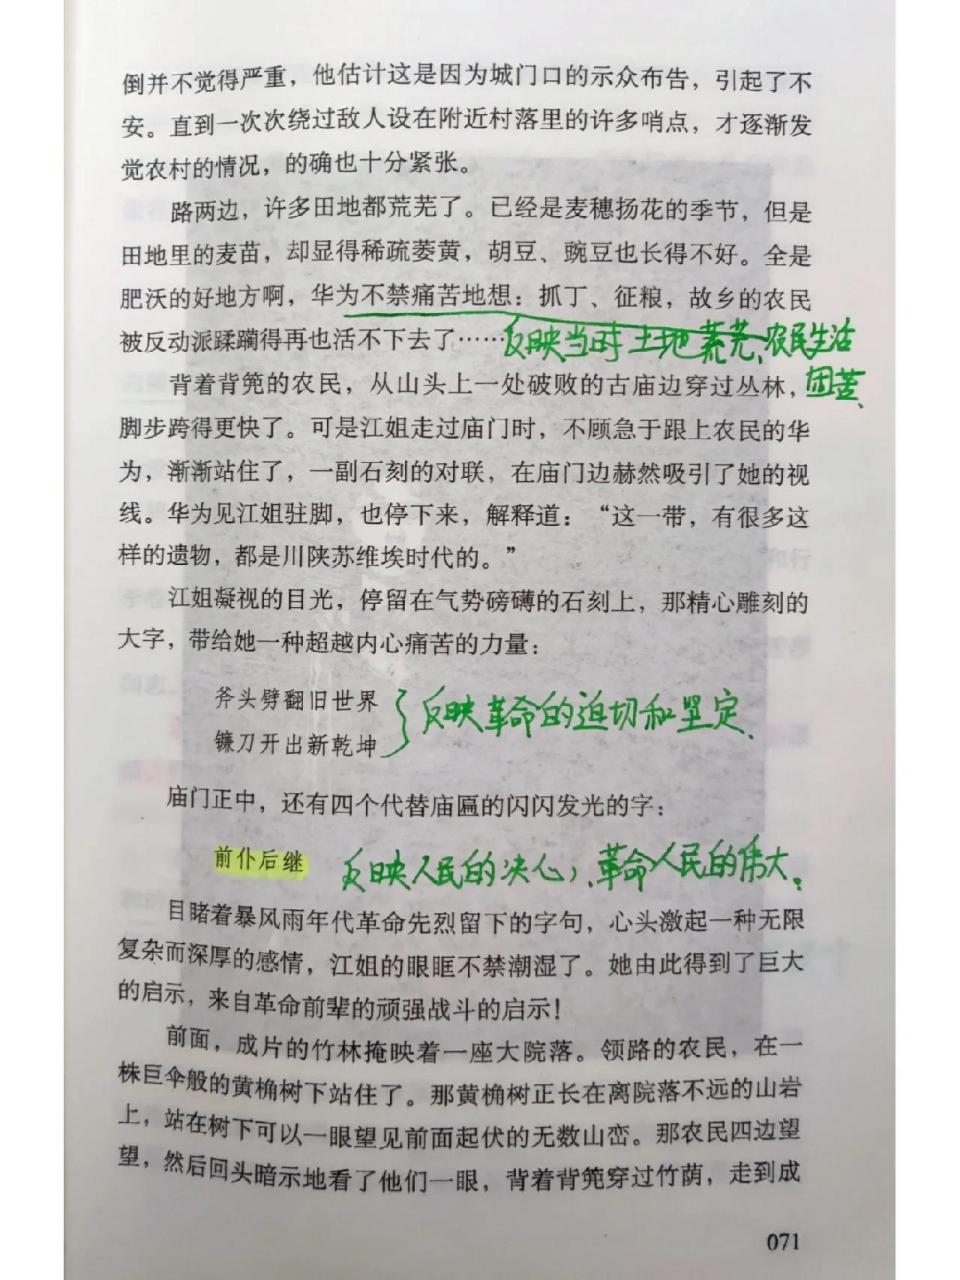 倒并不觉得严重，他估计这是因为城门口的示众布告，引起了不
安。直到一次次绕过敌人设在附近村落里的许多哨点，才逐渐发
觉农村的情况，的确也十分紧张。
路两边，许多田地都荒芜了。已经是麦穗扬花的季节，但是
田地里的麦苗，却显得稀疏萎黄，胡豆、豌豆也长得不好。全是
肥沃的好地方啊，华为不禁痛苦地想：抓丁、征粮，故乡的农民
被反动派蹂躏得再也活不下去了……
反映当时土地荒芜、农民生活
困苦、
背着背篼的农民，从山头上一处破败的古庙边穿过丛林，
脚步跨得更快了。可是江姐走过庙门时，不顾急于跟上农民的华
为，渐渐站住了，一副石刻的对联，在庙门边赫然吸引了她的视
线。华为见江姐驻脚，也停下来，解释道：“这一带，有很多这
样的遗物，都是川陕苏维埃时代的。”
江姐凝视的目光，停留在气势磅礴的石刻上，那精心雕刻的
大字，带给她一种超越内心痛苦的力量：
斧头劈翻旧世界
镰刀开出新乾坤
反映革命的迫切和坚定、
庙门正中，还有四个代替庙匾的闪闪发光的字：
前仆后继
反映人民的决心，革命人民的伟大。
目睹着暴风雨年代革命先烈留下的字句，心头激起一种无限
复杂而深厚的感情，江姐的眼眶不禁潮湿了。她由此得到了巨大
的启示，来自革命前辈的顽强战斗的启示！
前面，成片的竹林掩映着一座大院落。领路的农民，在一
株巨伞般的黄桷树下站住了。那黄桷树正长在离院落不远的山岩
上，站在树下可以一眼望见前面起伏的无数山峦。那农民四边望
望，然后回头暗示地看了他们一眼，背着背篼穿过竹荫，走到成
071